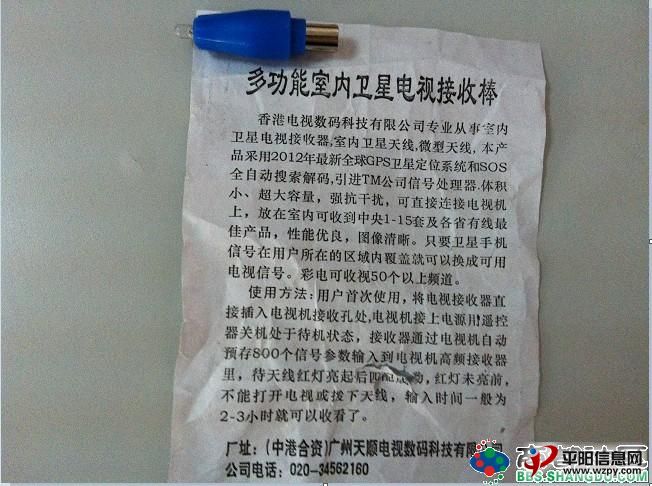 多功能室内卫星电视接收棒
香港电视数码科技有限公司专业从事室内
卫星电视接收器,室内卫星天线,微型天线,本产
品采用2012年最新全球GPS卫星定位系统和SOS
全自动搜索解码,引进TM公司信号处理器.体积
小、超大容量，强抗干扰，可直接连接电视机
上，放在室内可收到中央1-15套及各省有线最
佳产品，性能优良，图像清晰。只要卫星手机
信号在用户所在的区域内覆盖就可以换成可用
电视信号。彩电可收视50个以上频道。
使用方法:用户首次使用，将电视接收器直
接插入电视机接收孔处,电视机接上电源用遥控
器关机处于待机状态，接收器通过电视机自动
预存800个信号参数输入到电视机高频接收器
里，待天线红灯亮起后匹配，红灯未亮前，
不能打开电视或拨下天线，输入时间一般为
2-3小时就可以收看了。
厂址：(中港合资)广州天顺电视数码科技有限公司
公司电话：020-34562160
平阳信息网
www.wzpy.com
BBS.SHANGDU.COM